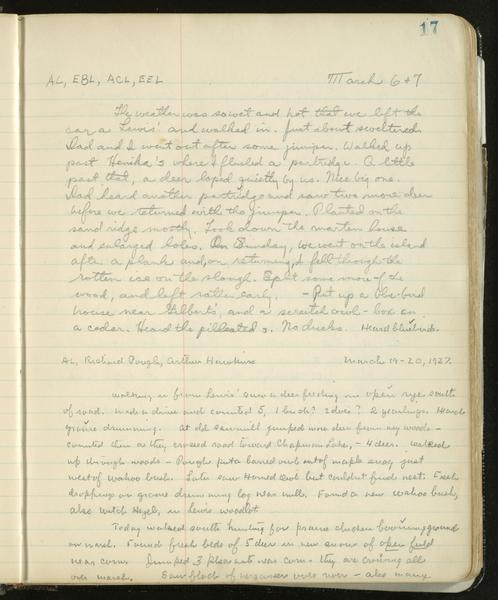 17
AL, EBL, ACL, EEL March 6+7
The weather was so wet and hot that we left the
car a Lewis' and walked in. Just about sweltered.
Dad and I went out after some juniper. Walked up
past Henika's where I flushed a partridge. A little
past that, a deer loped quietly by us. Nice big one.
Dad heard another partridge and saw two more deer
before we returned with the juniper. Planted on the
sand ridge mostly. Took down the marten house
and enlarged holes. On Sunday, we went on the island
after a plank and, on returning, I fell through the
rotten ice on the slough. Split some more of the
wood, and left rather early. - Put up a bluebird
house near Gilbert's, and a screech owl-box on
a cedar. Heard the No ducks. Heard bluebirds.
AL, Richard Pough, Arthur Hawkins March 19-20, 1937.
Walking in from Lewis' saw a deer feeding in open rye south
of road. Made a drive and counted 5, 1 buck? 2 does? 2 yearlings. Heard
grouse drumming. At old sawmill jumped more deer from my woods -
counted them as they crossed road toward Chapman Lake, - 4 deer. Walked
up through woods - Pough put a barred owl out of maple snag just
west of Wahoo bush. Later saw Horned Owl but couldn't find nest. Fresh
droppings on grouse drumming log near mill. Found a new wahoo bush,
also witch hazel, in Lewis woodlot
Today walked south hunting for prairie chicken booming ground
on marsh. Found fresh beds of 5 deer in new snow of open field
near corn. Jumped 3 pheasants near corn - they are crowing all
over marsh. Saw flock of mergansers over river - also many